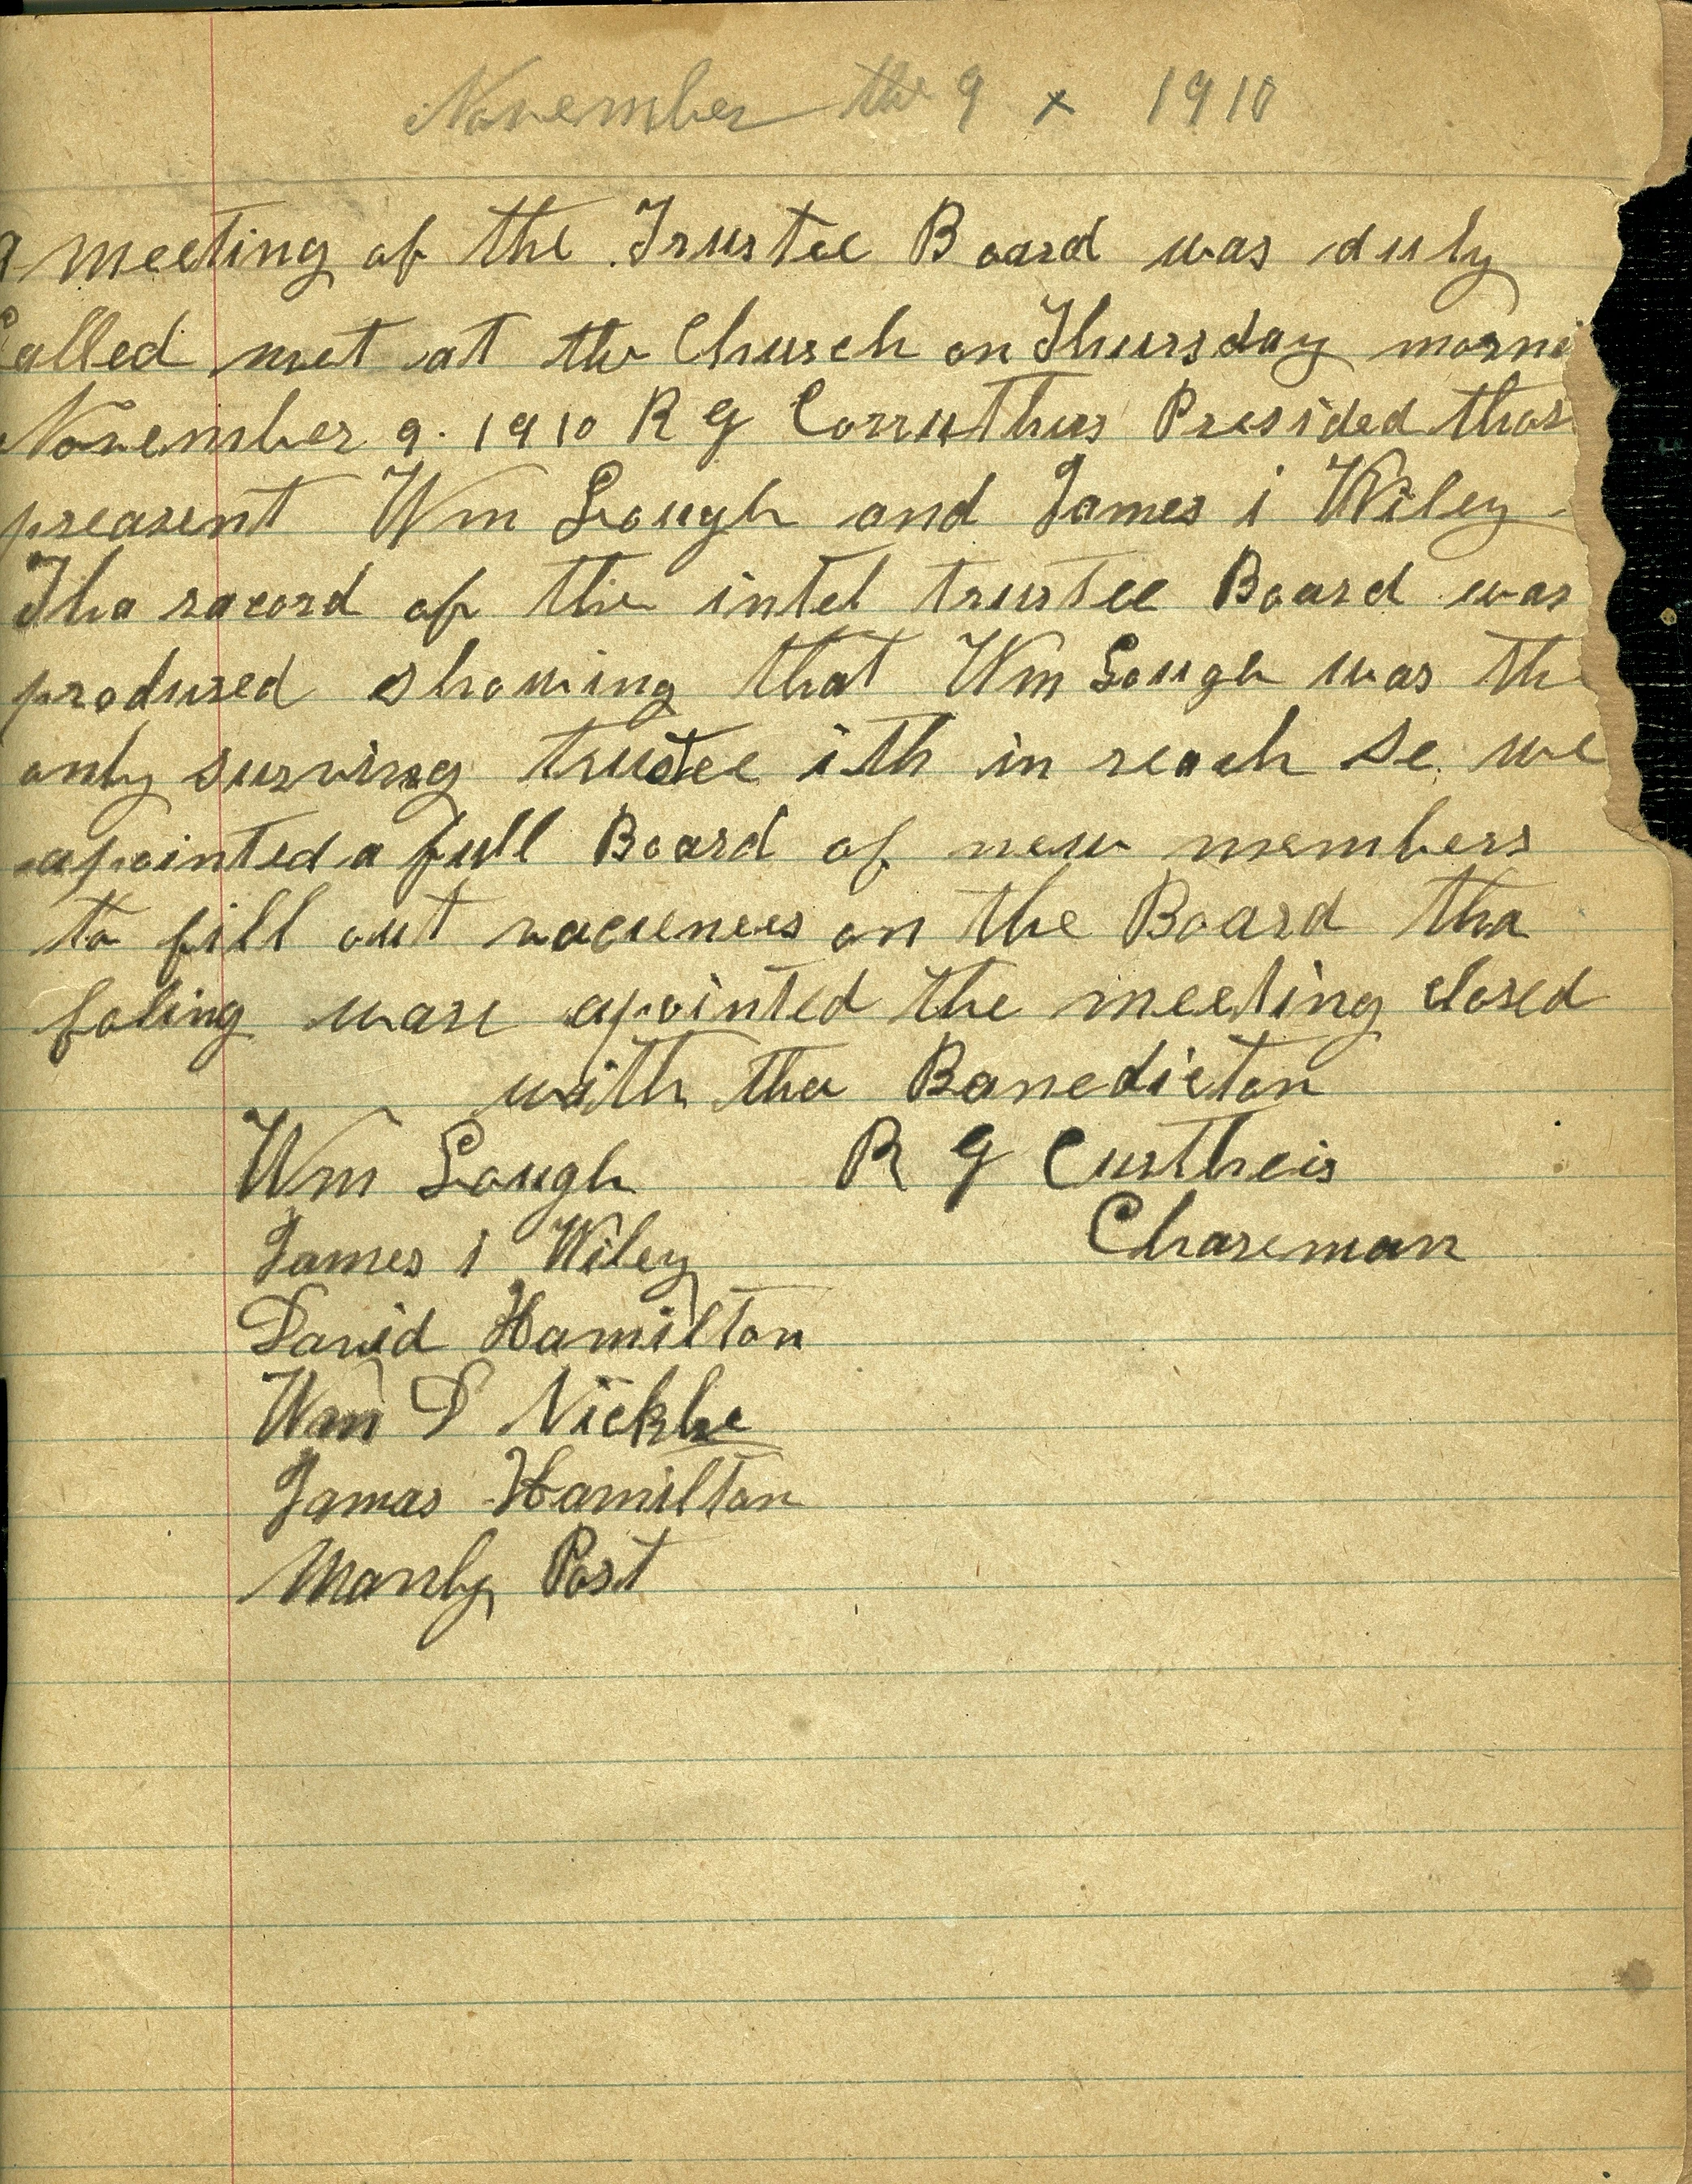 November the 9 x 1910
A meeting of the Trustee Board was duly
Called met at the Church on Thursday morni
November 9. 1910 R G Corruthers Presided thos
preasent Wm Lough and James i Wiley
The racord of the intel trustee Board was
prodused showing that Wm Lough was the
only surving trustee ith in reach so we
apointed a full Board of new members
to fill out on the Board tha
foling ware apointed the meeting closed
with the Banedicton
Wm Lough R G Curtheis
James i Wiley Chareman
David Hamilton
Wm D
Jamas Hamilton
Manly Post